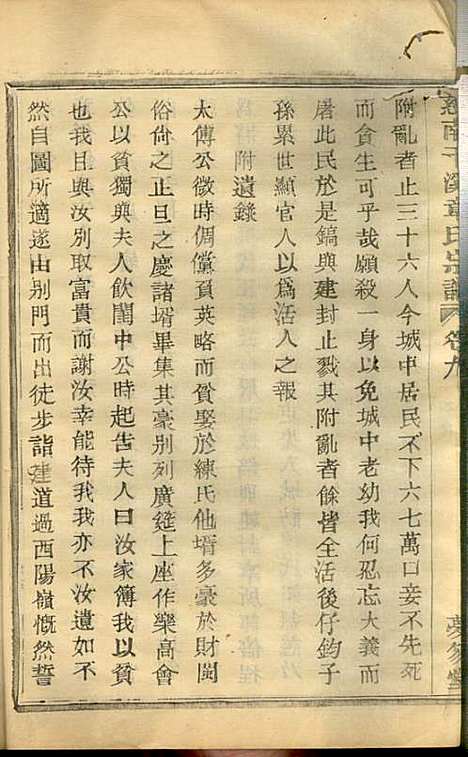 附亂者止三十六人今城中居民不下六七萬口妾不先死
而貪生可乎哉願殺一身以免城中老幼我何忍忘大義而
屠此民於是鎬與建封止戮其附亂者餘皆全活後仔鈞子
孫累世顯官人以爲活人之報
附遺錄
太傅公微時倜儻負英略而貧娶於練氏他壻多豪於財閩
俗尙之正旦之慶諸壻畢集其豪别列廣筵上座作樂高會
公以貧獨與夫人飮闈中公時起告夫人曰汝家簿我以貧
也我且與汝別取富貴而謝汝幸能待我我亦不汝遺如不
然自圖所適遂由别門而出徒步詣建道過西陽嶺慨然誓